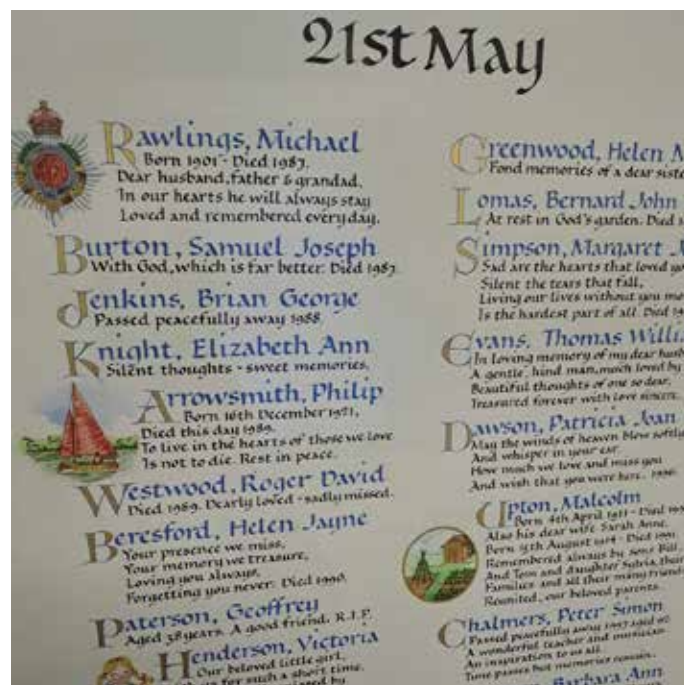 21st May
Rawlings, Michael
Born 1901 - Died 1987.
Dear husband, father & grandad,
In our hearts he will always stay
Loved and remembered every day.
Burton, Samuel Joseph
With God, which is far better. Died 1987.
Jenkins, Brian George
Passed peacefully away 1988.
Knight, Elizabeth Ann
Silent thoughts - sweet memories.
Arrowsmith, Philip
Born 16th December 1921,
Died this day 1989.
To live in the hearts of those we love
Is not to die. Rest in peace.
Westwood, Roger David
Died 1989. Dearly loved - sadly missed.
Beresford, Helen Jayne
Your presence we miss,
Your memory we treasure,
Loving you always,
Forgetting you never. Died 1990.
Paterson, Geoffrey
Aged 38 years. A good friend. R.I.P.
Henderson, Victoria
Our beloved little girl,
for such a short time.
by
Greenwood, Helen M
Fond memories of a dear siste
Lomas, Bernard John
At rest in God's garden. Died 1
Simpson, Margaret
Sad are the hearts that loved yo
Silent the tears that fall,
Living our lives without you
Is the hardest part of all. Died 19
Evans, Thomas Willi
In loving memory of my dear husb
A gentle, kind man, much loved by
Beautiful thoughts of one so dear,
Treasured forever with love sincere.
Dawson, Patricia Joan
May the winds of heaven blow softly
And whisper in your ear
How much we love and miss you
And wish that you were here. 1996.
Upton, Malcolm
Born 4th April 1911 - Died 199
Also his dear wife Sarah Anne,
Born 15th August 1914 - Died 1991
Remembered always by sons Bill,
And Tom and daughter Sylvia, their
Families and all their many friends
Reunited, our beloved parents.
Chalmers, Peter Simon
Passed peacefully away 1997 aged
A wonderful teacher and musician
An inspiration to us all.
Time passes but memories remain.
Barbara Ann